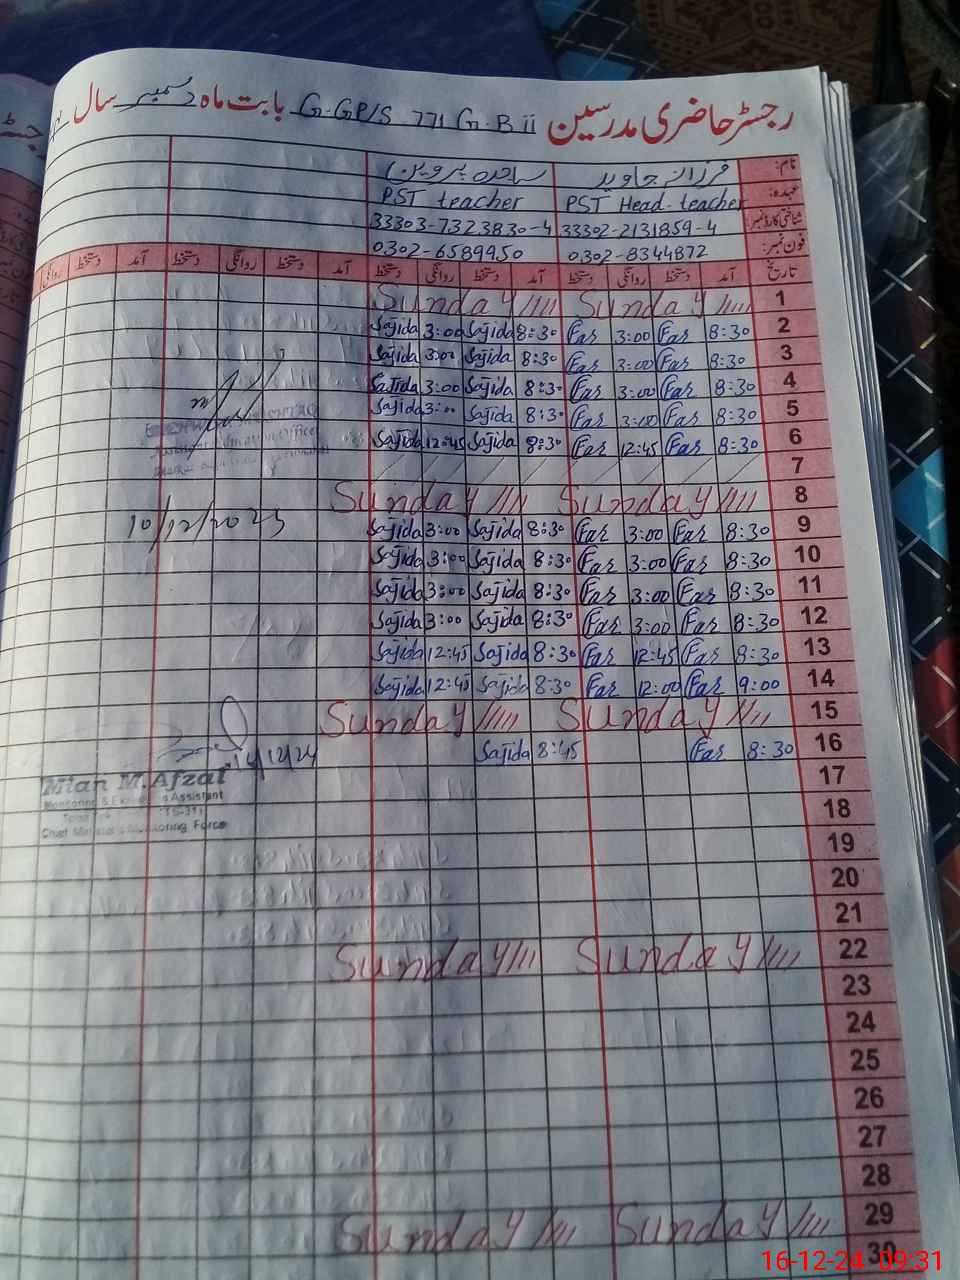 رجسٹر حاضری مدرسین G.GP/S 771 G.B ii بابت ماہ دسمبر سال
نام: فرزانہ جاوید ساجدہ پروین
عہدہ: PST Head-teacher PST teacher
شناختی کارڈ نمبر: 33302-2131859-4 33303-7323830-4
فون نمبر: 0302-8344872 0302-6589950
تاریخ آمد دستخط روانگی دستخط آمد دستخط روانگی دستخط آمد دستخط روانگی دستخط آمد دستخط روانگی
Sunday Sunday 1
Sajida 3:00 Sajida 8:30 Far 3:00 Far 8:30 2
Sajida 3:00 Sajida 8:30 Far 3:00 Far 8:30 3
Sajida 3:00 Sajida 8:30 Far 3:00 Far 8:30 4
Sajida 3:00 Sajida 8:30 Far 3:00 Far 8:30 5
Sajida 12:45 Sajida 8:30 Far 12:45 Far 8:30 6
7
Sunday Sunday 8
10/12/2023 Sajida 3:00 Sajida 8:30 Far 3:00 Far 8:30 9
Sajida 3:00 Sajida 8:30 Far 3:00 Far 8:30 10
Sajida 3:00 Sajida 8:30 Far 3:00 Far 8:30 11
Sajida 3:00 Sajida 8:30 Far 3:00 Far 8:30 12
Sajida 12:45 Sajida 8:30 Far 12:45 Far 8:30 13
Sajida 12:45 Sajida 8:30 Far 12:00 Far 9:00 14
Sunday Sunday 15
14/12/24 Sajida 8:45 Far 8:30 16
Mian M. Afzal
Monitoring & Assistant
Chief Minister's Monitoring Force
17
18
19
20
21
Sunday Sunday 22
23
24
25
26
27
28
Sunday Sunday 29
30
16-12-24 09:31